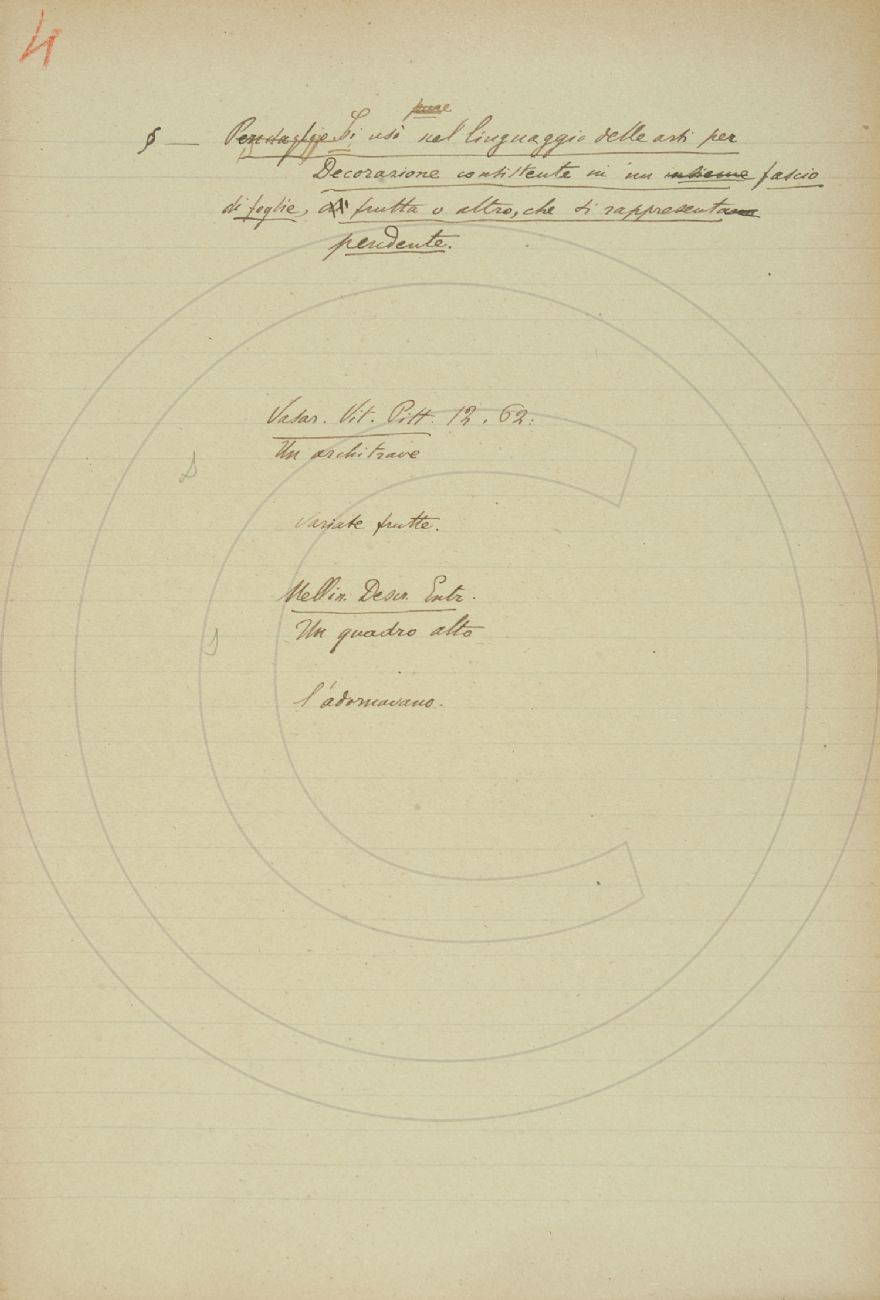 4
pure
§ — Pendaglio Si usò nel linguaggio delle arti per
Decorazione consistente in un insieme fascio
di foglie, di frutta o altro, che si rappresentano
pendente.
Vasar. Vit. Pitt. 12. 62:
Un architrave
variate frutte.
Mellin. Descr. Entr.
Un quadro alto
l'adornavano.